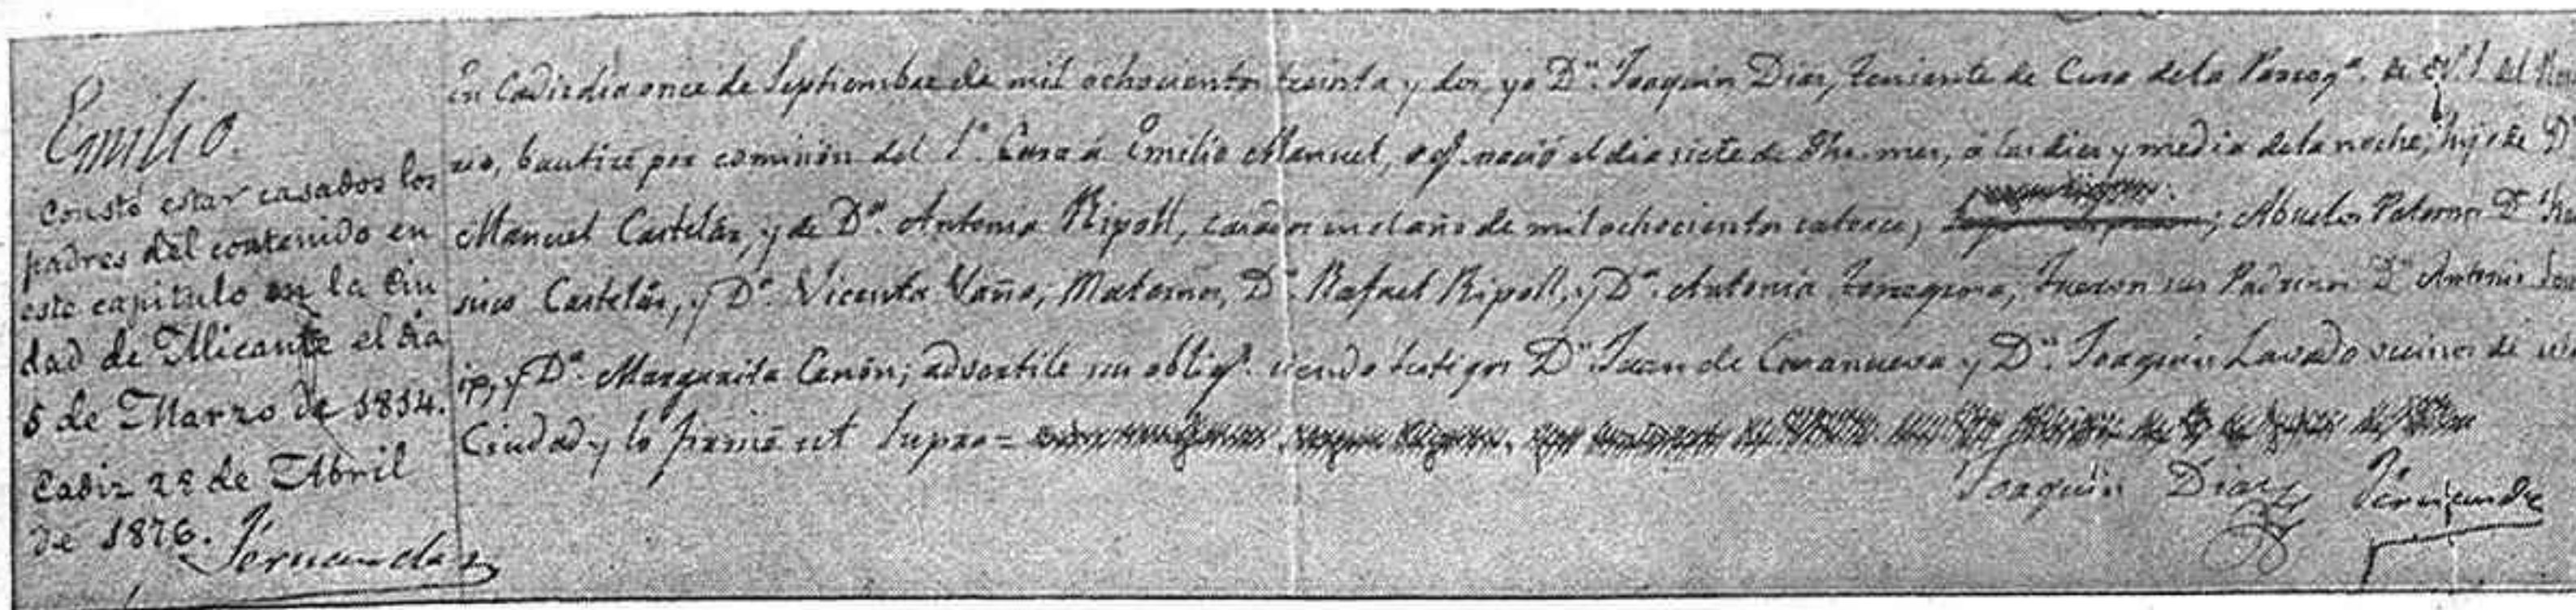 Emilio.
Constó estar casados los
padres del contenido en
este capitulo en la Ciu
dad de Alicante el dia
5 de Marzo de 1814.
Cadiz 28 de Abril
de 1876.
Fernandez
En Cadiz dia once de Septiembre de mil ochocientos treinta y dos, yo Dn. Joaquin Diaz, teniente de Cura de la Parroqa. de del
rio, bauticé por comision del Sr. Cura á Emilio Manuel, q nació el dia siete de dho. mes, á las diez y media de la noche, hijo de D
Manuel Castelar, y de Da. Antonia Ripoll, casados en el año de mil ochocientos catorce; ; Abuelos Paternos Dn
sico Castelar, y Da. Vicenta Vaño; Maternos, Dn. Rafael Ripoll, y Da. Antonia fueron sus Padrinos Dn Antonio
y Da. Margarita Cenón; advertile su obligo. siendo testigos Dn Juan de Casanueva y Dn. Joaquin Lavado vecinos de
Ciudad y lo firmé ut supra =
Joaquin Diaz Fernandez